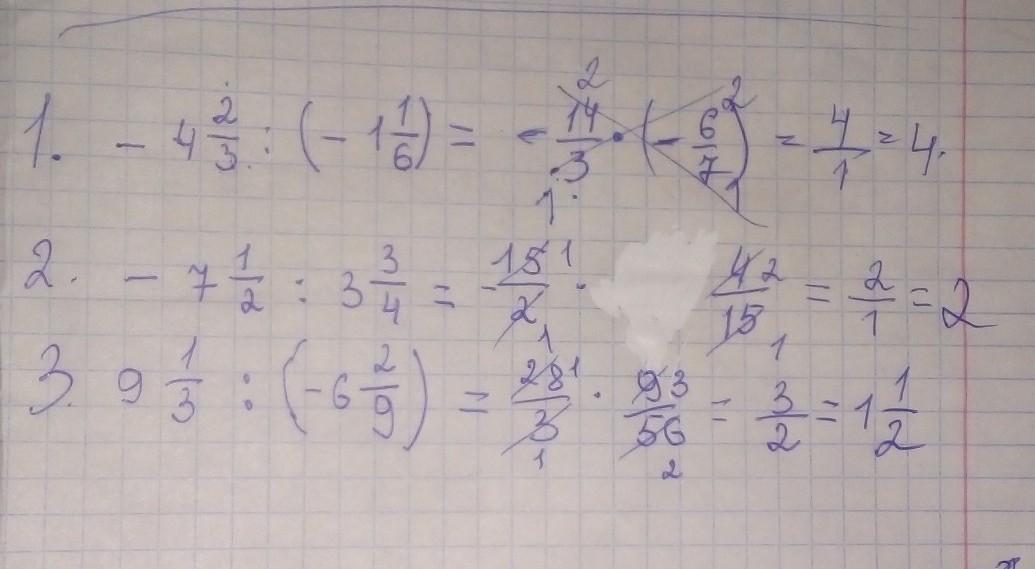 1. - 4 2/3 : (- 1 1/6) = - 14/3 · (- 6/7) = 4/1 = 4.
2. - 7 1/2 : 3 3/4 = - 15/2 · 4/15 = 2/1 = 2
3. 9 1/3 : (-6 2/9) = 28/3 · 9/56 = 3/2 = 1 1/2